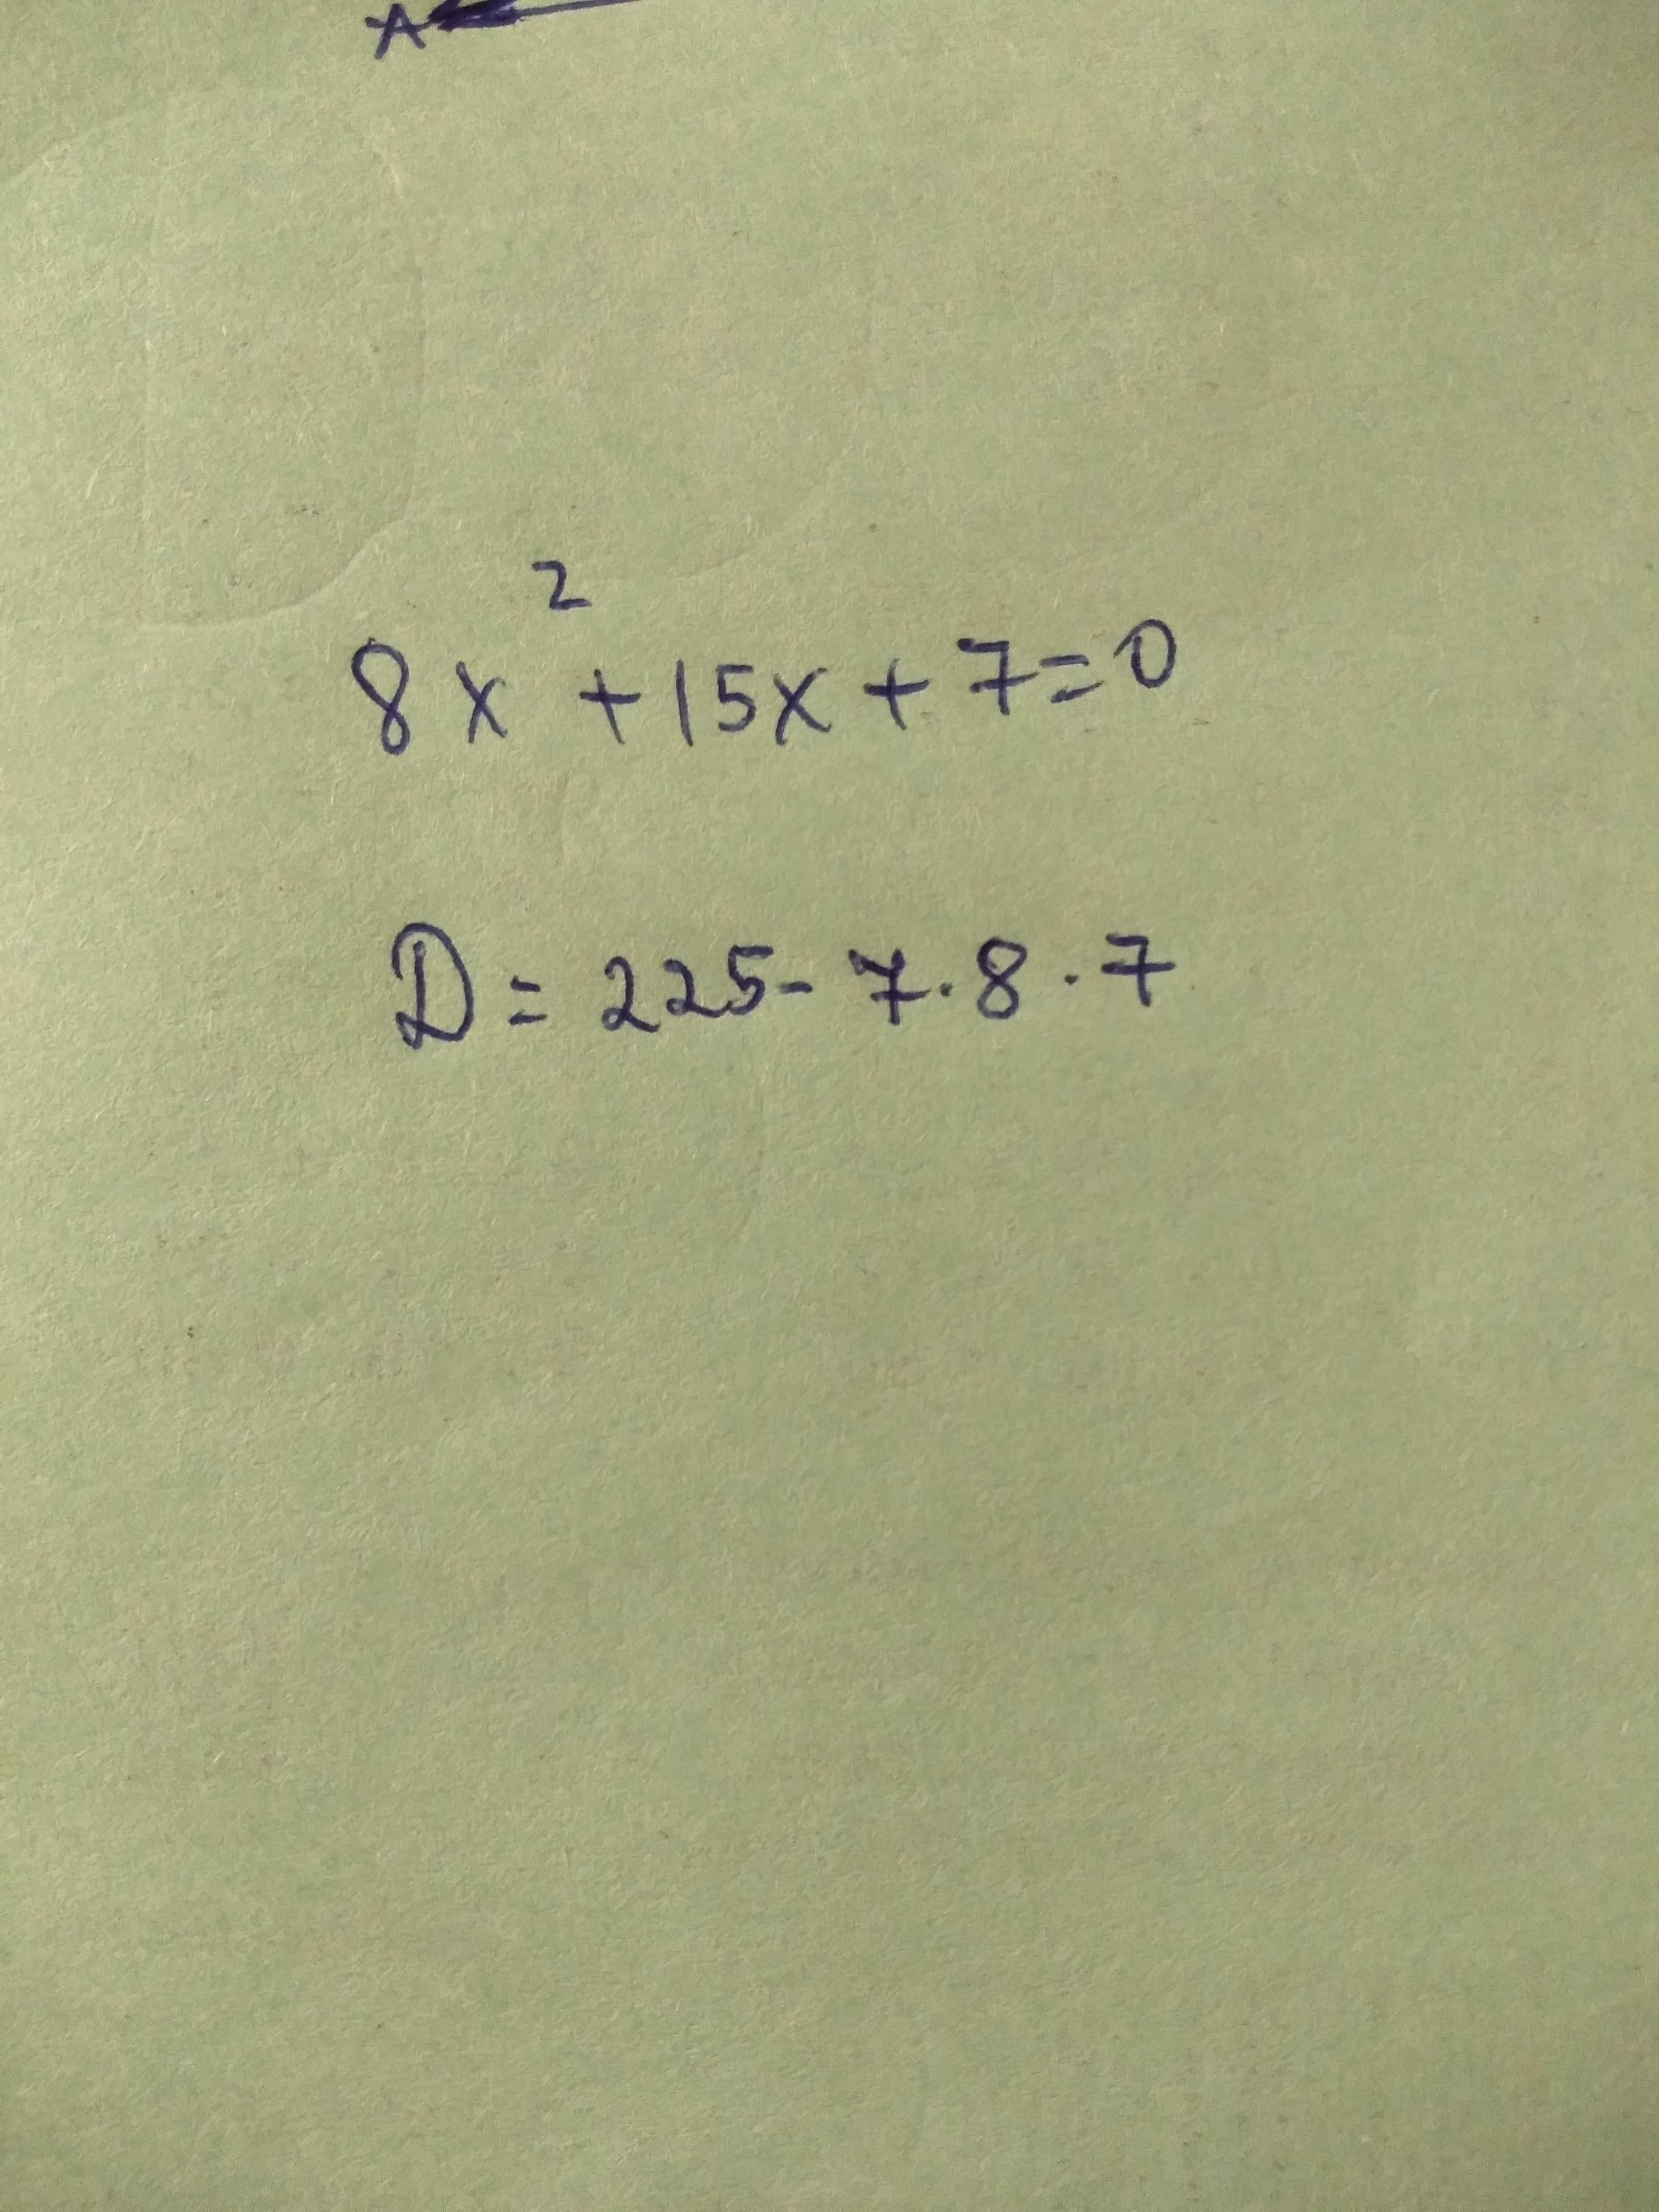 A
8x² +15x+7=0
D=225-7·8·7